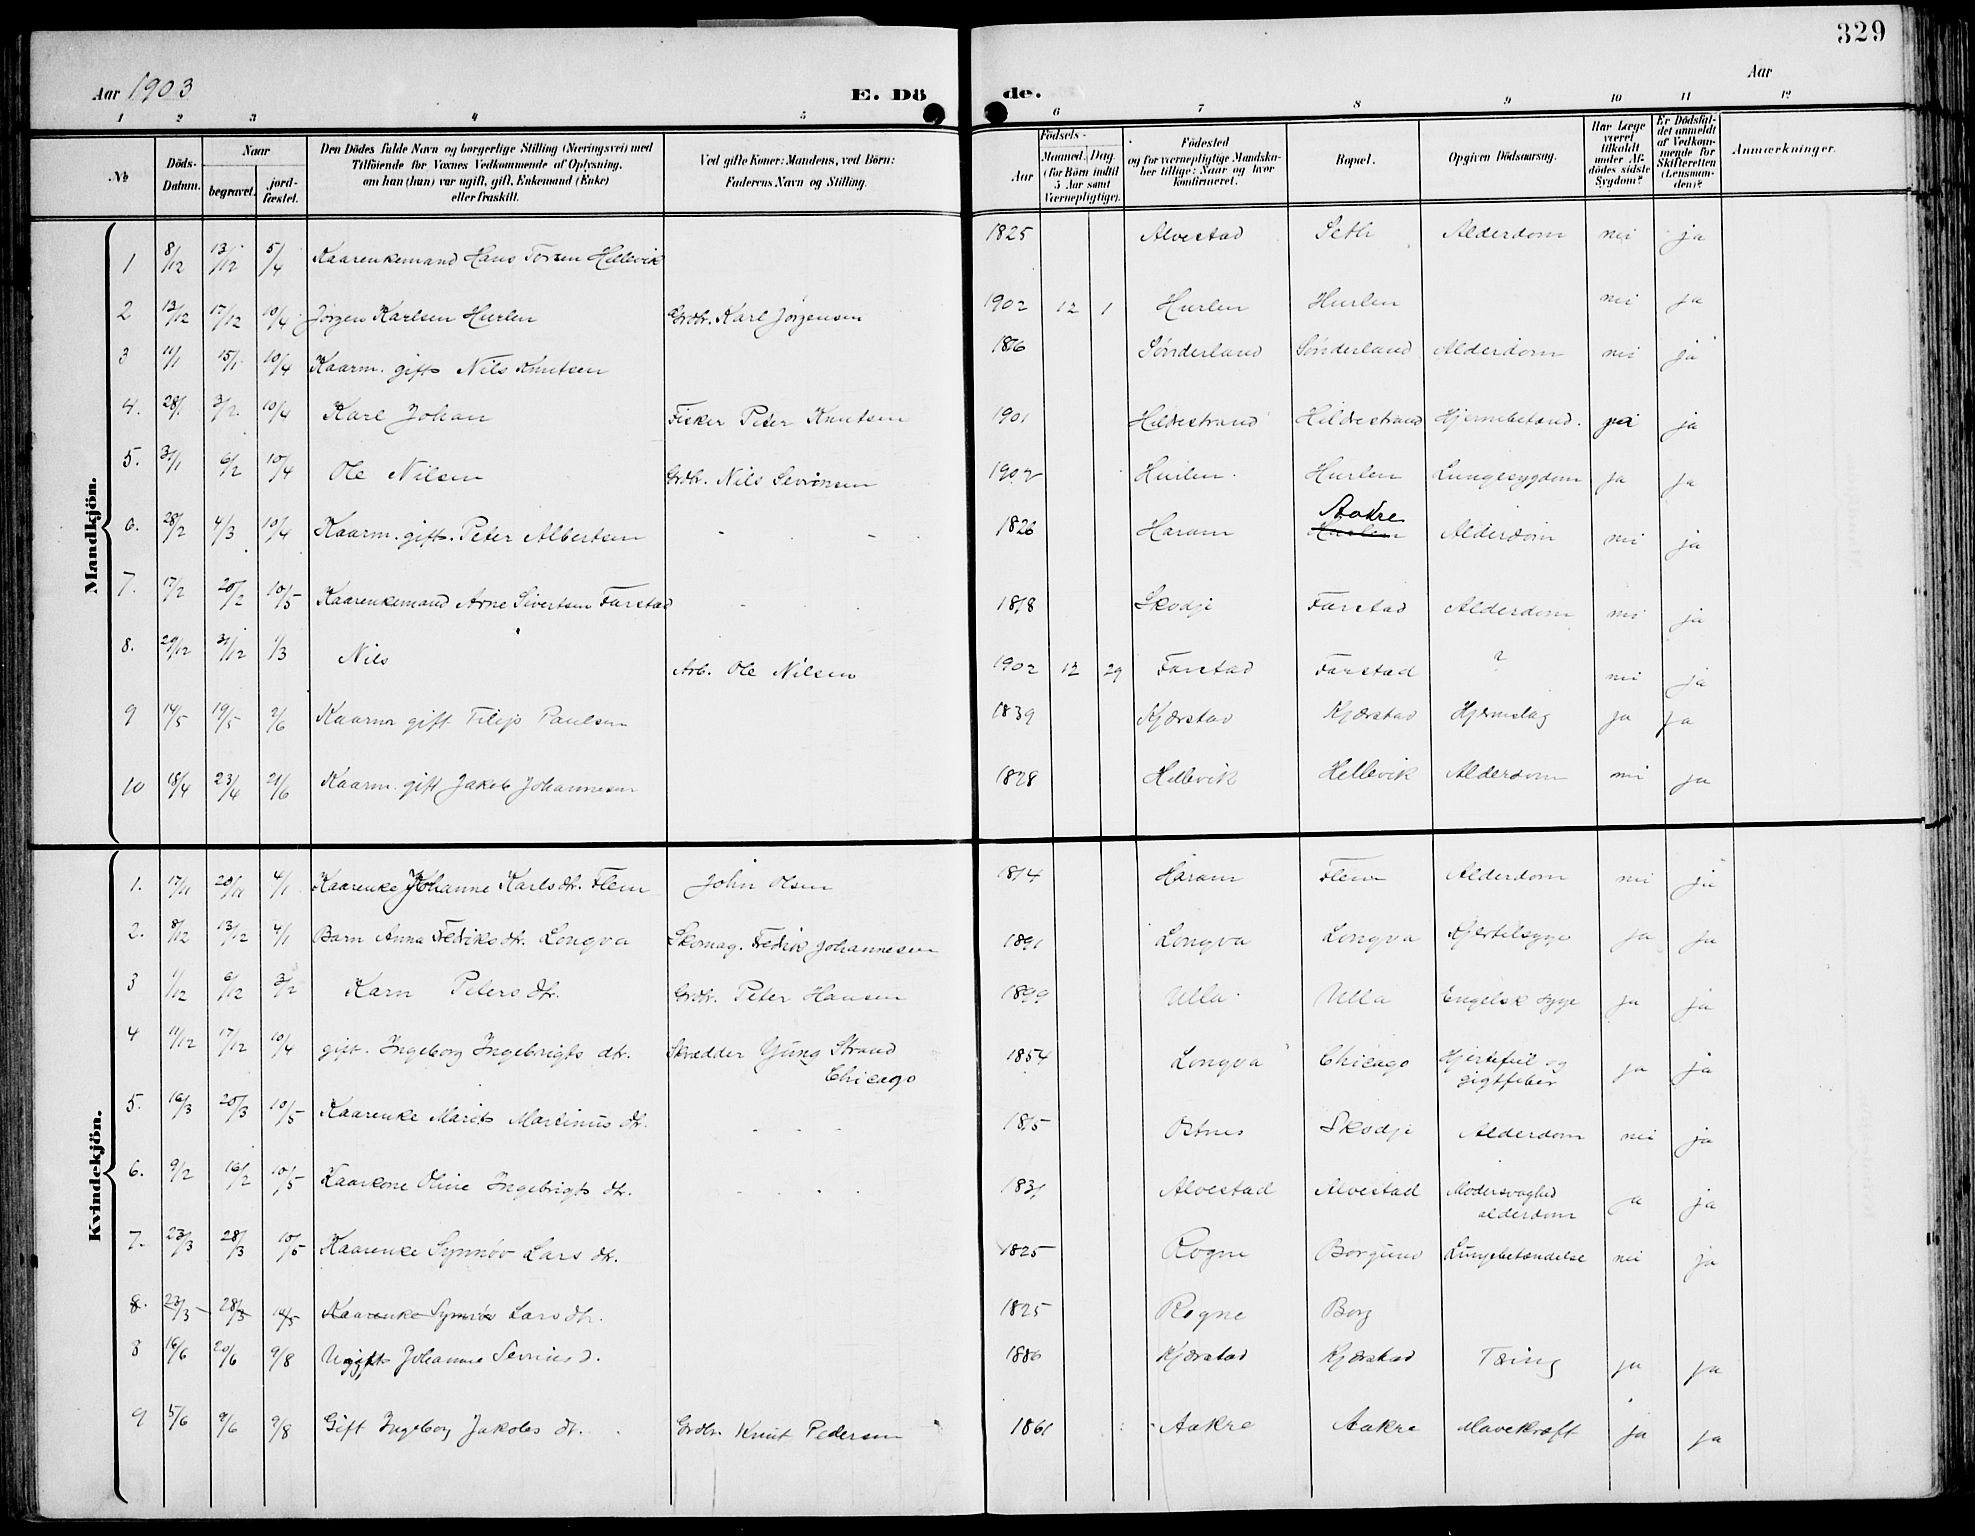 329
Aar 1903 E. Dö de. Aar
1 2 3 4 5 6 7 8 9 10 11 12
№ Döds-Datum. Naar begravet. jordfæstet. Den Dödes fulde Navn og borgerlige Stilling (Næringsvei) med Tilföiende for Voxnes Vedkommende af Oplysning, om han (hun) var ugift, gift, Enkemand (Enke) eller fraskilt. Ved gifte Koner: Mandens, ved Börn: Faderens Navn og Stilling. Födsels- Aar Maaned. Dag. (for Börn indtil 5 Aar samt Værnepligtige). Födested og for værnepligtige Mandskaber tillige: Naar og hvor konfirmeret. Bopæl. Opgiven Dödsaarsag. Har Læge været tilkaldt under Afdödes sidste Sygdom? Er Dödsfaldet anmeldt af Vedkommende for Skifteretten (Lensmanden)? Anmærkninger.
Mandkjön.
1 8/12 13/12 5/4 Kaarenkemand Hans Torsen Hellevik 1825 Alvestad Seth Alderdom nei ja
2 13/12 17/12 10/4 Jørgen Karlsen Hurlen Grdbr. Karl Jørgensen 1902 12 1 Hurlen Hurlen nei ja
3 11/1 15/1 10/4 Kaarm. gift Nils Knutsen 1816 Sønderland Sønderland Alderdom nei ja
4. 28/1 3/2 10/4 Karl Johan Fisker Peter Knutsen 1901 Hildestrand Hildestrand Hjernebetænd. ja
5. 31/1 6/2 10/4 Ole Nilsen Grdbr. Nils Sevrinsen 1902 Hurlen Hurlen Lungesygdom ja ja
6. 28/2 4/3 10/4 Kaarm. gift. Peter Albertsen 1826 Haram Aakre Hurlen Alderdom nei ja
7. 17/2 20/2 10/5 Kaarenkemand Arne Sivertsen Farstad 1818 Skodje Farstad Alderdom nei ja
8. 29/12 31/12 1/3 Nils Arb. Ole Nilsen 1902 12 29 Farstad Farstad ? nei ja
9 14/5 19/5 2/6 Kaarm gift Filip Paulsen 1839 Kjærstad Kjærstad Hjerneslag ja ja
10 18/4 23/4 21/6 Kaarm. gift Jakob Johannesen 1828 Hellevik Hellevik Alderdom nei ja
Kvindekjön.
1. 17/11 20/11 4/1 Kaarenke Johanne Karlsdtr. Flem John Olsen 1814 Haram Flem Alderdom nei ja
2. 8/12 13/12 4/1 Barn Anna Fedriksdtr. Longva Skomag. Fedrik Johannesen 1891 Longva Longva Kjertelsyge ja ja
3 1/12 6/12 3/2 Karn Petersdtr. Grdbr. Peter Hansen 1899 Ulla Ulla Engelsk syge ja ja
4 11/12 17/12 10/4 gift. Ingeborg Ingebrigts dtr. Skrædder Gung Strand 1854 Longva Chicago Hjertefeil og ja ja
Chicago gigtfeber
5. 16/3 20/3 10/5 Kaarenke Marit Martinus dtr. 1815 Østnes Skodje Alderdom nei ja
6. 9/2 16/2 10/5 Kaarkone Oline Ingebrigts dtr. 1831 Alvestad Alvestad Modersvaghed alderdom ja ja
7. 23/3 28/3 10/5 Kaarenke Synnøv Lars dtr. 1825 Rogne Borgund Lungebetændelse nei ja
8. 23/3 28/3 10/5 Kaarenke Synnøv Lars dtr. 1825 Rogne Borg
8 16/6 20/6 9/8 Ugift Johanne Sevrinsd. 1886 Kjærstad Kjærstad Tæring ja ja
9 5/6 9/6 9/8 Gift Ingeborg Jakobs dt. Grdbr. Knut Pedersen 1861 Aakre Aakre Mavekræft ja ja